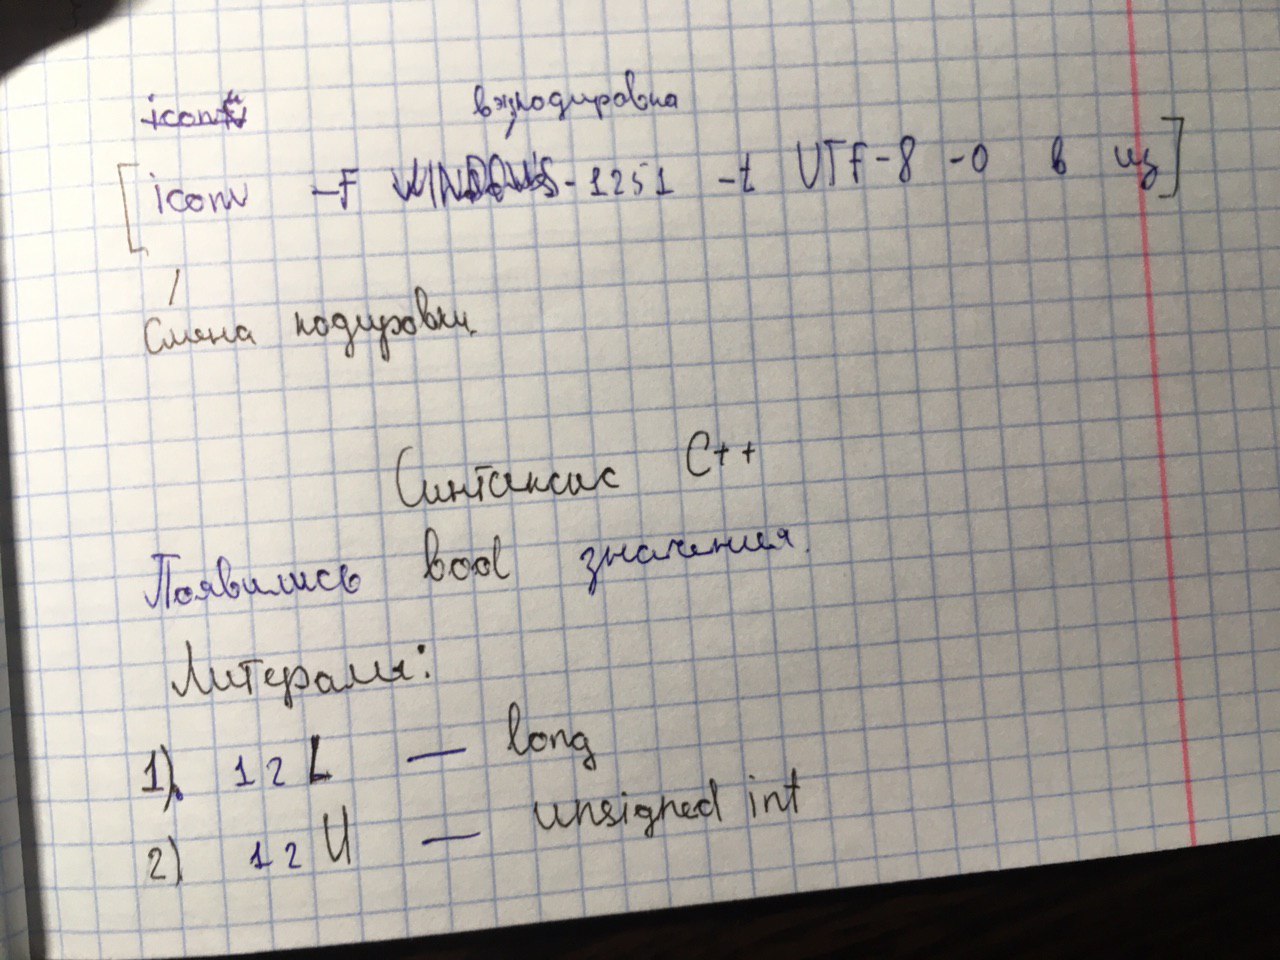 кодировка
[iconv -F WINDOWS-1251 -t UTF-8 -o в из]
Смена кодировки
Синтаксис C++
Появились bool значения.
Литералы:
1). 12L — long
2) 12U — unsigned int